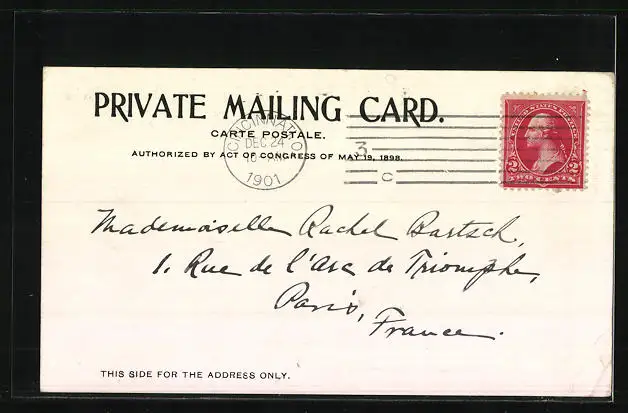 PRIVATE MAILING CARD.
CARTE POSTALE.
AUTHORIZED BY ACT OF CONGRESS OF MAY 19, 1898.
CINCINNATI O
DEC 24
1901
3
C
UNITED STATES
2 2
TWO CENTS
Mademoiselle Rachel Bartsch,
1. Rue de l'Arc de Triomphe,
Paris,
France.
THIS SIDE FOR THE ADDRESS ONLY.